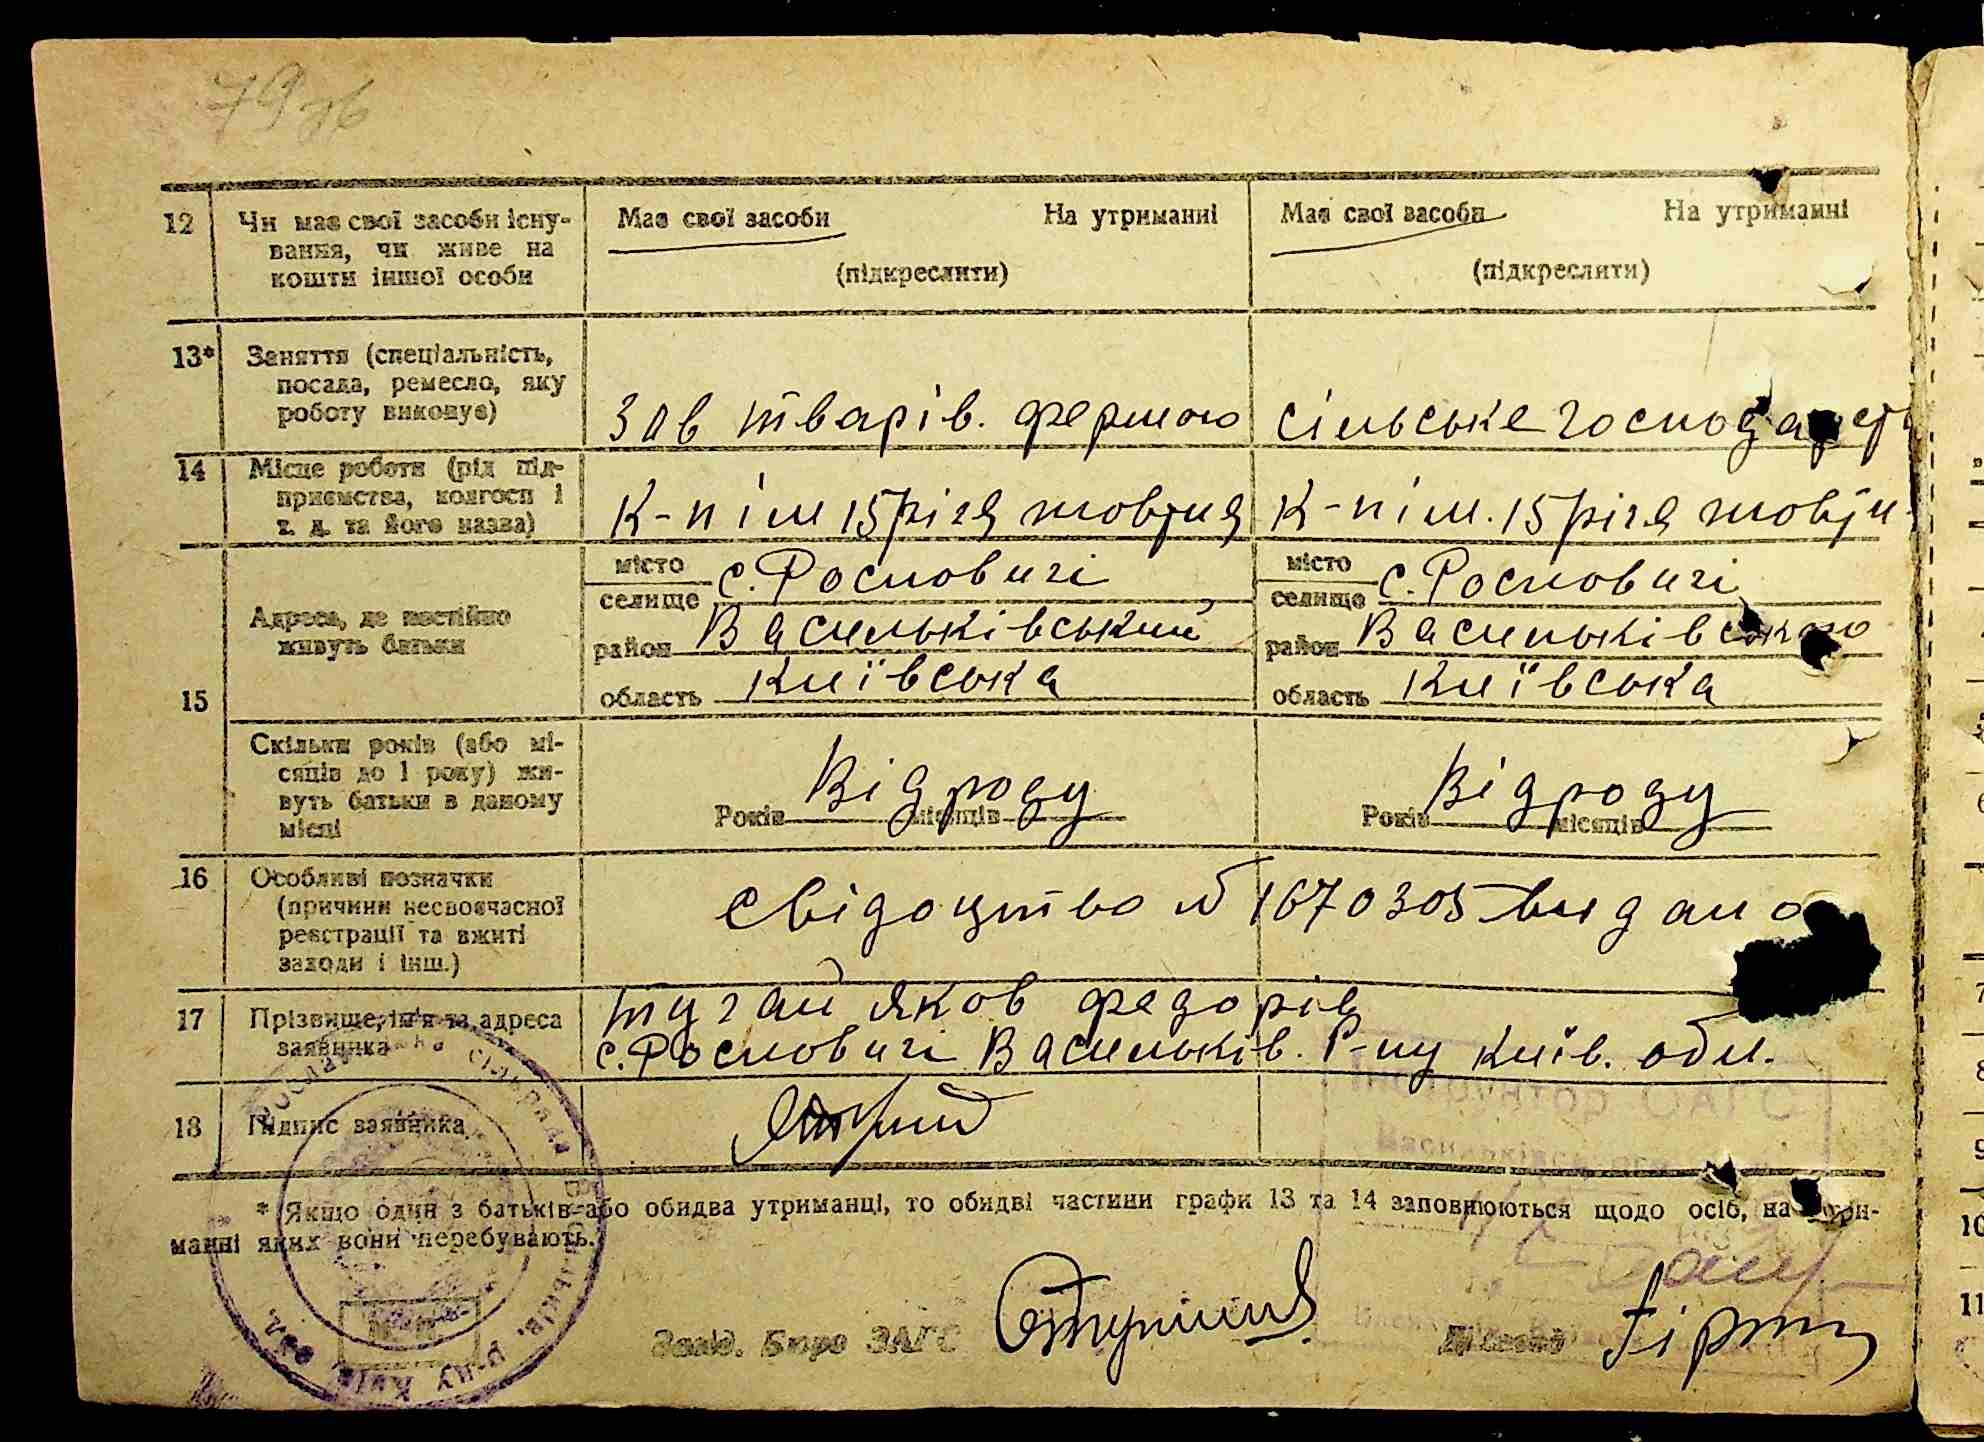 79зв
12 Чи має свої засоби існу- Має свої засоби На утриманні Має свої засоби На утриманні
вання, чи живе на
кошти іншої особи (підкреслити) (підкреслити)
13* Заняття (спеціальність,
посада, ремесло, яку
роботу виконує) Зав тварів. фермою сільське господарст
14 Місце роботи (рід під-
приємства, колгосп і
т. д. та його назва) К-п ім 15 річя жовтня К-п ім. 15 річя жовтн
15 Адреса, де постійно
живуть батьки
місто селище с. Росновичі місто селище с. Росновичі
район Васильківський район Васильківсько
область Київська область Київська
Скільки років (або мі-
сяців до 1 року) жи-
вуть батьки в даному
місці Років Від роду місяців Років Від роду місяців
16 Особливі позначки
(причини несвоєчасної
реєстрації та вжиті
заходи і інш.) Свідоцтво № 1670305 видано
17 Прізвище, ім'я та адреса
заявника Тугай Яков Федорів
с. Росновичі Васильків. р-ну Київ. обл.
18 Підпис заявника
* Якщо один з батьків або обидва утриманці, то обидві частини графи 13 та 14 заповнюються щодо осіб, на утри-
манні яких вони перебувають.
Завід. Бюро ЗАГС Діловод
Інспектор ОАГС